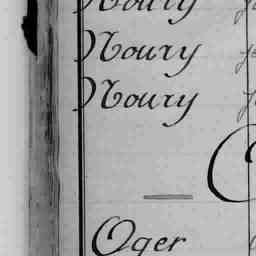 Noury
Noury
Noury
Oger